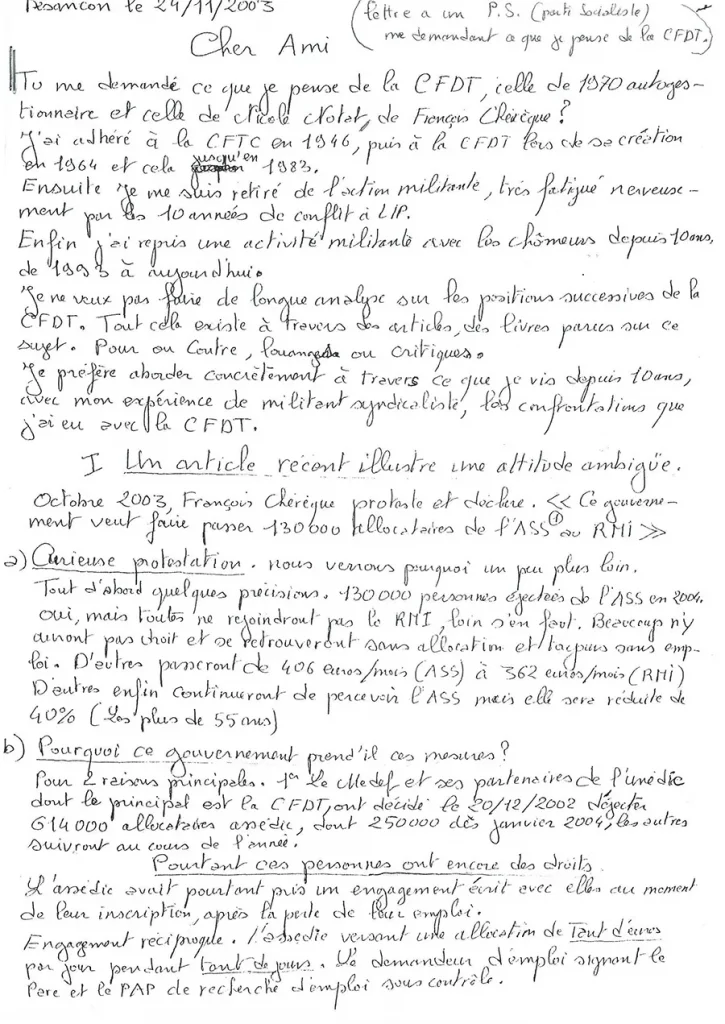 Besancon le 24/11/2003
(lettre a un P.S. (parti Socialiste)
me demandant ce que je pense de la CFDT.)
Cher Ami
Tu me demande ce que je pense de la CFDT, celle de 1970 autoges-
tionnaire et celle de Nicole Notat, de François Chérèque ?
J'ai adhéré à la CFTC en 1946, puis à la CFDT lors de sa création
en 1964 et cela jusqu'en 1983.
Ensuite je me suis retiré de l'action militante, très fatigué nerveuse-
ment par les 10 années de conflit à LIP.
Enfin j'ai repris une activité militante avec les chômeurs depuis 10 ans,
de 1993 à aujourd'hui.
Je ne veux pas faire de longue analyse sur les positions successives de la
CFDT. Tout cela existe à travers des articles, des livres parus sur ce
sujet. Pour ou Contre, louanges ou critiques.
Je préfère aborder concrètement à travers ce que je vis depuis 10 ans,
avec mon expérience de militant syndicaliste, les confrontations que
j'ai eu avec la CFDT.
I Un article récent illustre une attitude ambigüe.
Octobre 2003, François Chérèque proteste et déclare. << Ce gouverne-
ment veut faire passer 130 000 allocataires de l'ASS ① au RMI >>
a) Curieuse protestation. nous verrons pourquoi un peu plus loin.
Tout d'abord quelques précisions. 130 000 personnes éjectées de l'ASS en 2004.
oui, mais toutes ne rejoindront pas le RMI, loin s'en faut. Beaucoup n'y
auront pas droit et se retrouveront sans allocation et toujours sans emp-
loi. D'autres passeront de 406 euros/mois (ASS) à 362 euros/mois (RMI)
D'autres enfin continueront de percevoir l'ASS mais elle sera réduite de
40% (Les plus de 55 ans)
b) Pourquoi ce gouvernement prend'il ces mesures ?
Pour 2 raisons principales. 1er Le Medef et ses partenaires de l'unédic
dont le principal est la CFDT, ont décidé le 20/12/2002 d'éjecter
614 000 allocataires assédic, dont 250 000 dès janvier 2004, les autres
suivront au cours de l'année.
Pourtant ces personnes ont encore des droits
L'assédic avait pourtant pris un engagement écrit avec elles au moment
de leur inscription, après la perte de leur emploi.
Engagement réciproque. L'assédic versant une allocation de Tant d'euros
par jour pendant tant de jours. Le demandeur d'emploi signant le
Pare et le PAP de recherche d'emploi sous contrôle.